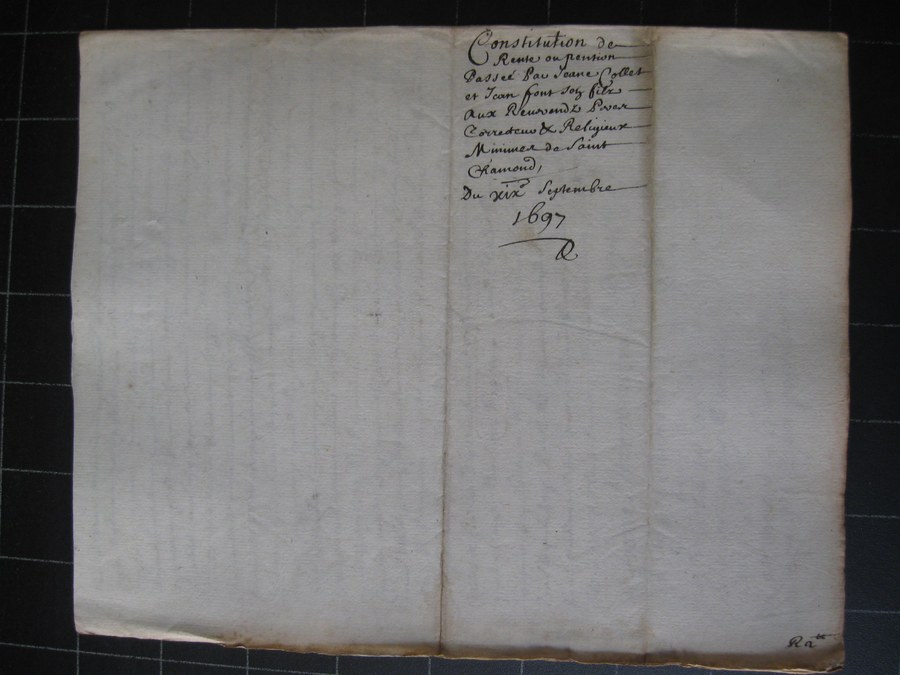 Constitution de
Rente ou pention
Passeé Par Jeane Collet
et Jean font son filz
Aux Reuerendz Peres
Correcteur & Religieux
Minimes de Saint
Chamond,
Du xixe Septembre
1697